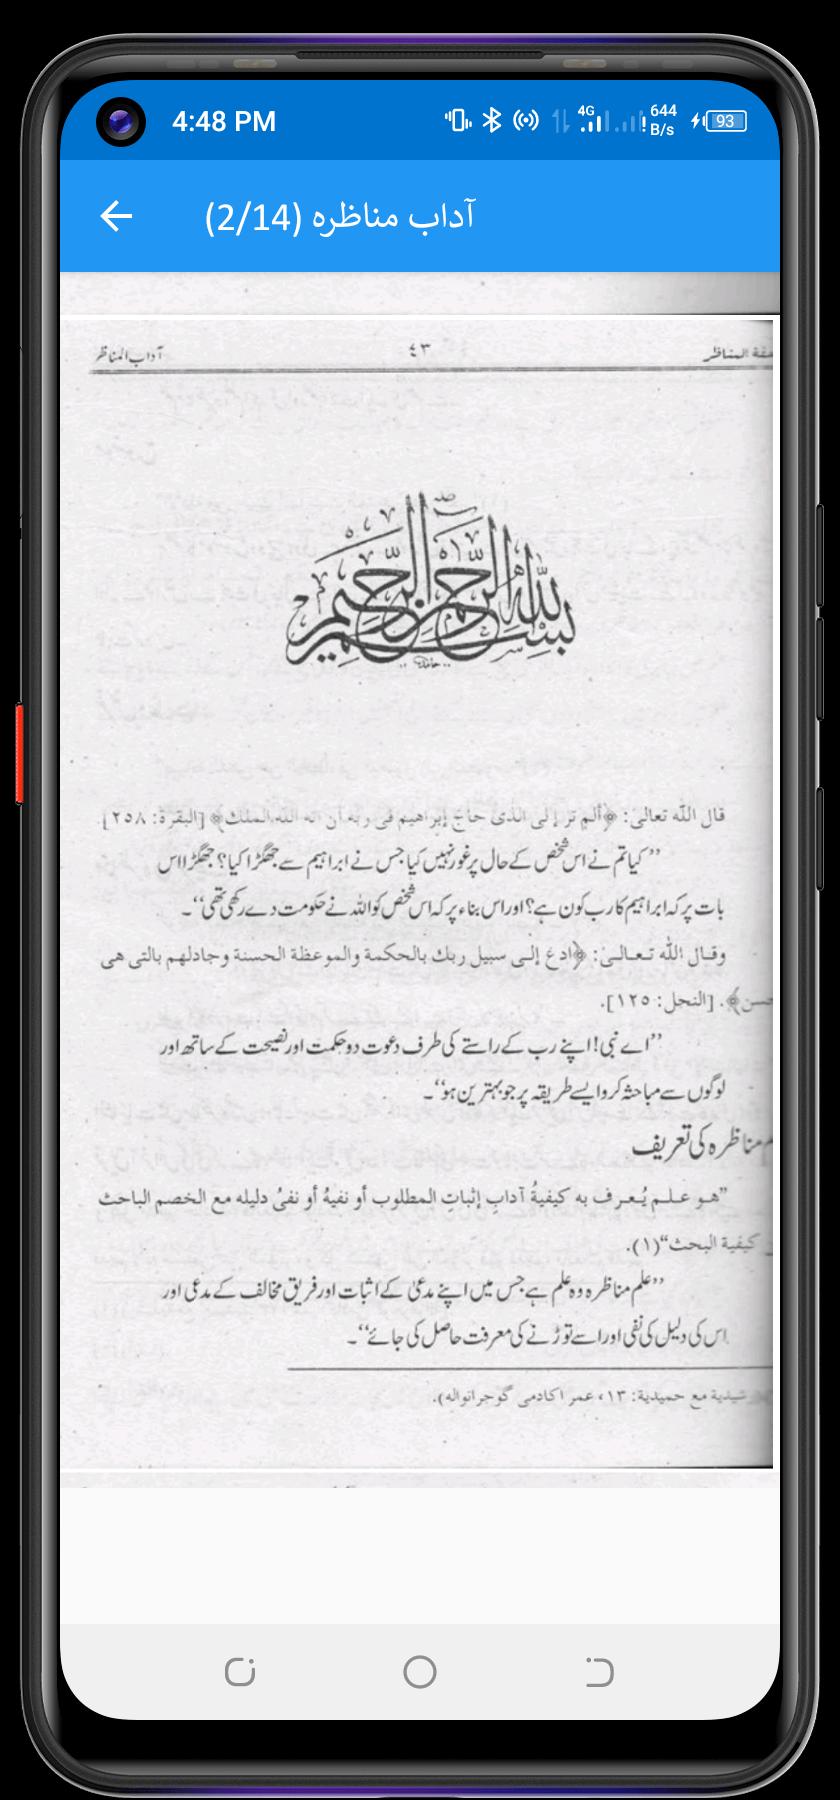 4:48 PM
4G
644 B/s
93
آداب مناظره (2/14)
آداب المناظر
٤٣
المناظر
بسم الله الرحمن الرحيم
قال الله تعالىٰ: ﴿ألم تر إلى الذى حاج إبراهيم فى ربه أن اته الله الملك﴾ [البقرة: ٢٥٨].
”کیا تم نے اس شخص کے حال پر غور نہیں کیا جس نے ابراہیم سے جھگڑا کیا؟ جھگڑا اس
بات پر کہ ابراہیم کا رب کون ہے؟ اور اس بناء پر کہ اس شخص کو اللہ نے حکومت دے رکھی تھی“۔
وقال الله تعالىٰ: ﴿ادع إلى سبيل ربك بالحكمة والموعظة الحسنة وجادلهم بالتى هى
حسن﴾. [النحل: ١٢٥].
”اے نبی! اپنے رب کے راستے کی طرف دعوت دو حکمت اور نصیحت کے ساتھ اور
لوگوں سے مباحثہ کرو ایسے طریقہ پر جو بہترین ہو“۔
مناظرہ کی تعریف
”هو علم يُعرف به كيفيةُ آدابِ إثباتِ المطلوب أو نفيهُ أو نفىُ دليله مع الخصم الباحث
كيفية البحث“(١).
”علم مناظرہ وہ علم ہے جس میں اپنے مدعیٰ کے اثبات اور فریق مخالف کے مدعی اور
اس کی دلیل کی نفی اور اسے توڑنے کی معرفت حاصل کی جائے“۔
شيدية مع حميدية: ١٣، عمر اكادمى گوجرانواله).